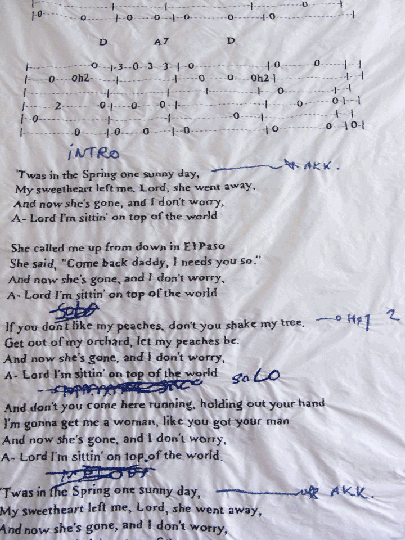 D A7 D
INTRO
'Twas in the Spring one sunny day, AKK.
My sweetheart left me, Lord, she went away,
And now she's gone, and I don't worry,
A- Lord I'm sittin' on top of the world
She called me up from down in El Paso
She said, "Come back daddy, I needs you so."
And now she's gone, and I don't worry,
A- Lord I'm sittin' on top of the world
If you don't like my peaches, don't you shake my tree, 2
Get out of my orchard, let my peaches be.
And now she's gone, and I don't worry,
A- Lord I'm sittin' on top of the world
SOLO
And don't you come here running, holding out your hand
I'm gonna get me a woman, like you got your man
And now she's gone, and I don't worry,
A- Lord I'm sittin' on top of the world.
'Twas in the Spring one sunny day, AKK.
My sweetheart left me, Lord, she went away,
And now she's gone, and I don't worry,